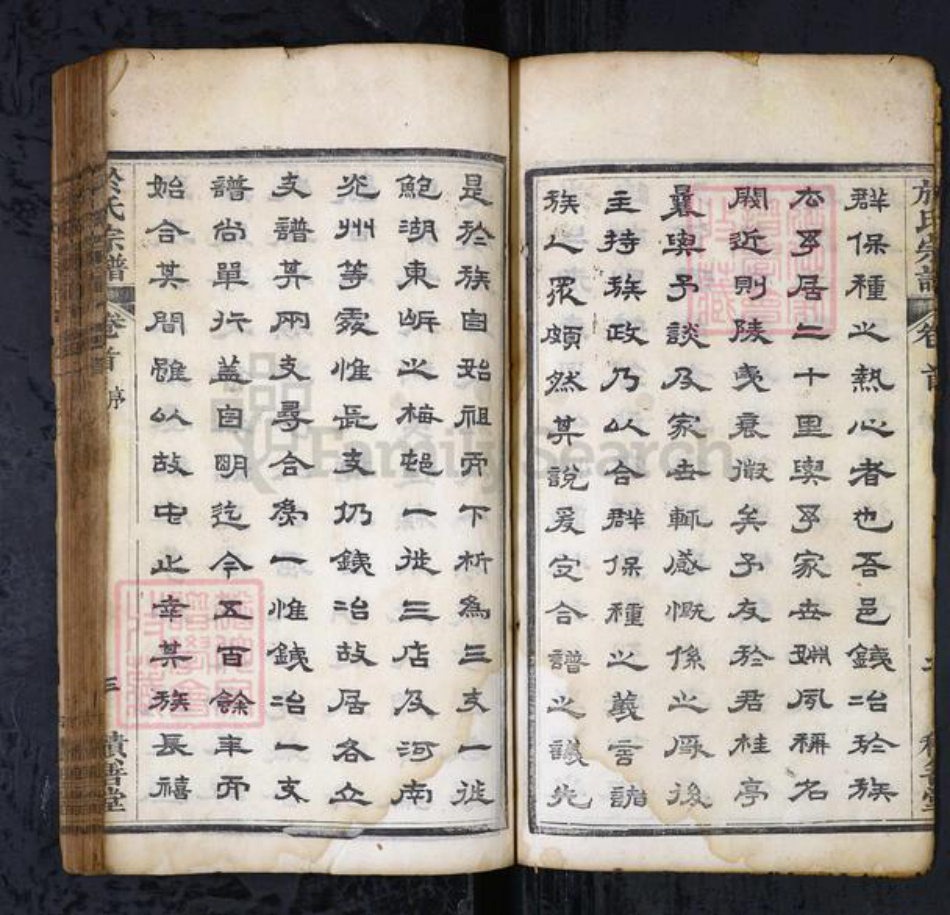 群保種之熱心者也吾邑銕冶於族
公予居二十里與予家世姻夙稱名
閥近則陵夷衰微矣予友於君桂亭
曩與予談及家世輒感慨係之厥後
主持族政乃以合群保種之義言諸
族人眾頗然其說爰定合譜之議先
於氏宗譜 卷首
是於族自始祖而下析為三支一徙
鮑湖東岍之梅邨一徙三店及河南
光州等處惟長支仍銕冶故居各立
支譜其兩支尋合為一惟銕冶一支
譜尚單行蓋自明迄今五百餘年而
始合其間雖以故中止幸其族長禧
於氏宗譜 卷首 序 三 積善堂
FamilySearch